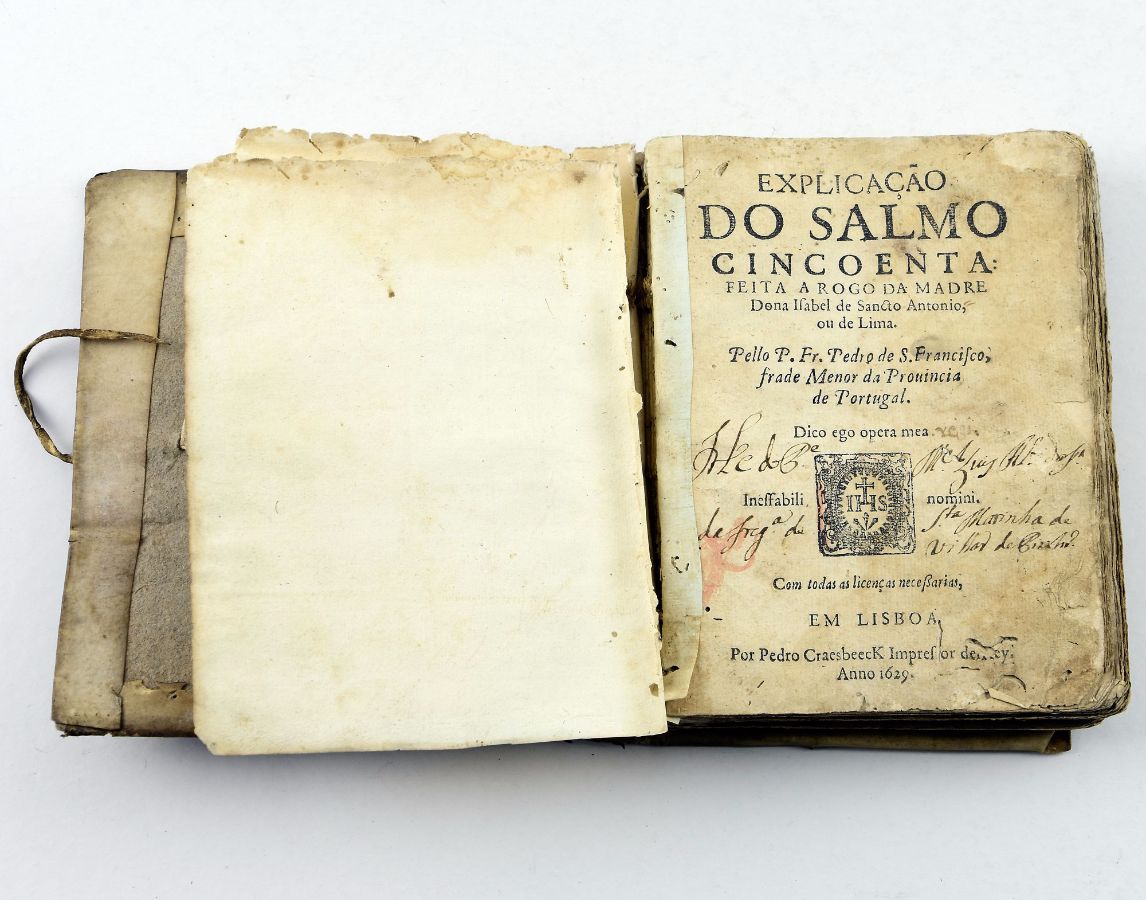 EXPLICAÇÃO
DO SALMO
CINCOENTA:
FEITA A ROGO DA MADRE
Dona Iſabel de Sancto Antonio,
ou de Lima.
Pello P. Fr. Pedro de S. Franciſco,
frade Menor da Prouincia
de Portugal.
Dico ego opera mea
do Pe
IHS
Ineffabili nomini.
da freg.a de Sta Marinha de
Com todas as licenças neceſſarias,
EM LISBOA,
Por Pedro CraesbeecK Impreſſor del Rey.
Anno 1629.